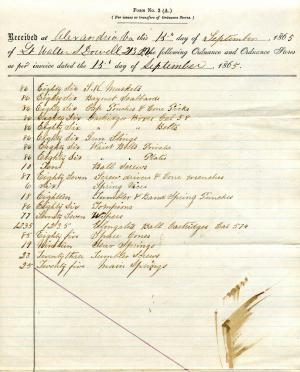 Form No. 2 (A.)
(For issue or transfer of Ordnance Stores.)
Received at Alexandria Va this 15th day of September 1865
of Lt Walter S Dowell the following Ordnance and Ordnance Stores
as per invoice dated the 15th day of September, 1865.
86 Eighty Six Muskets
86 Eighty Six Bayonet Scabbards
86 Eighty Six Cap Pouches & Cone Picks
86 Eighty Six Cartridge Boxes Cal 58
86 Eighty Six " " Belts
86 Eighty Six Gun Slings
86 Eighty Six Waist Belts Privates
86 Eighty Six " " Plates
10 Ten Ball Screws
87 Eighty Seven Screw drivers & Cone wrenches
6 Six Spring Vices
18 Eighteen Tumbler & Band Spring Punches
86 Eighty Six Tompions
77 Seventy Seven Wipers
1235 1235 Elongated Ball Cartridges Cal 574
85 Eighty five Spare Cones
19 Nineteen Sear Springs
23 Twenty three Tumbler Screws
25 Twenty five Main Springs